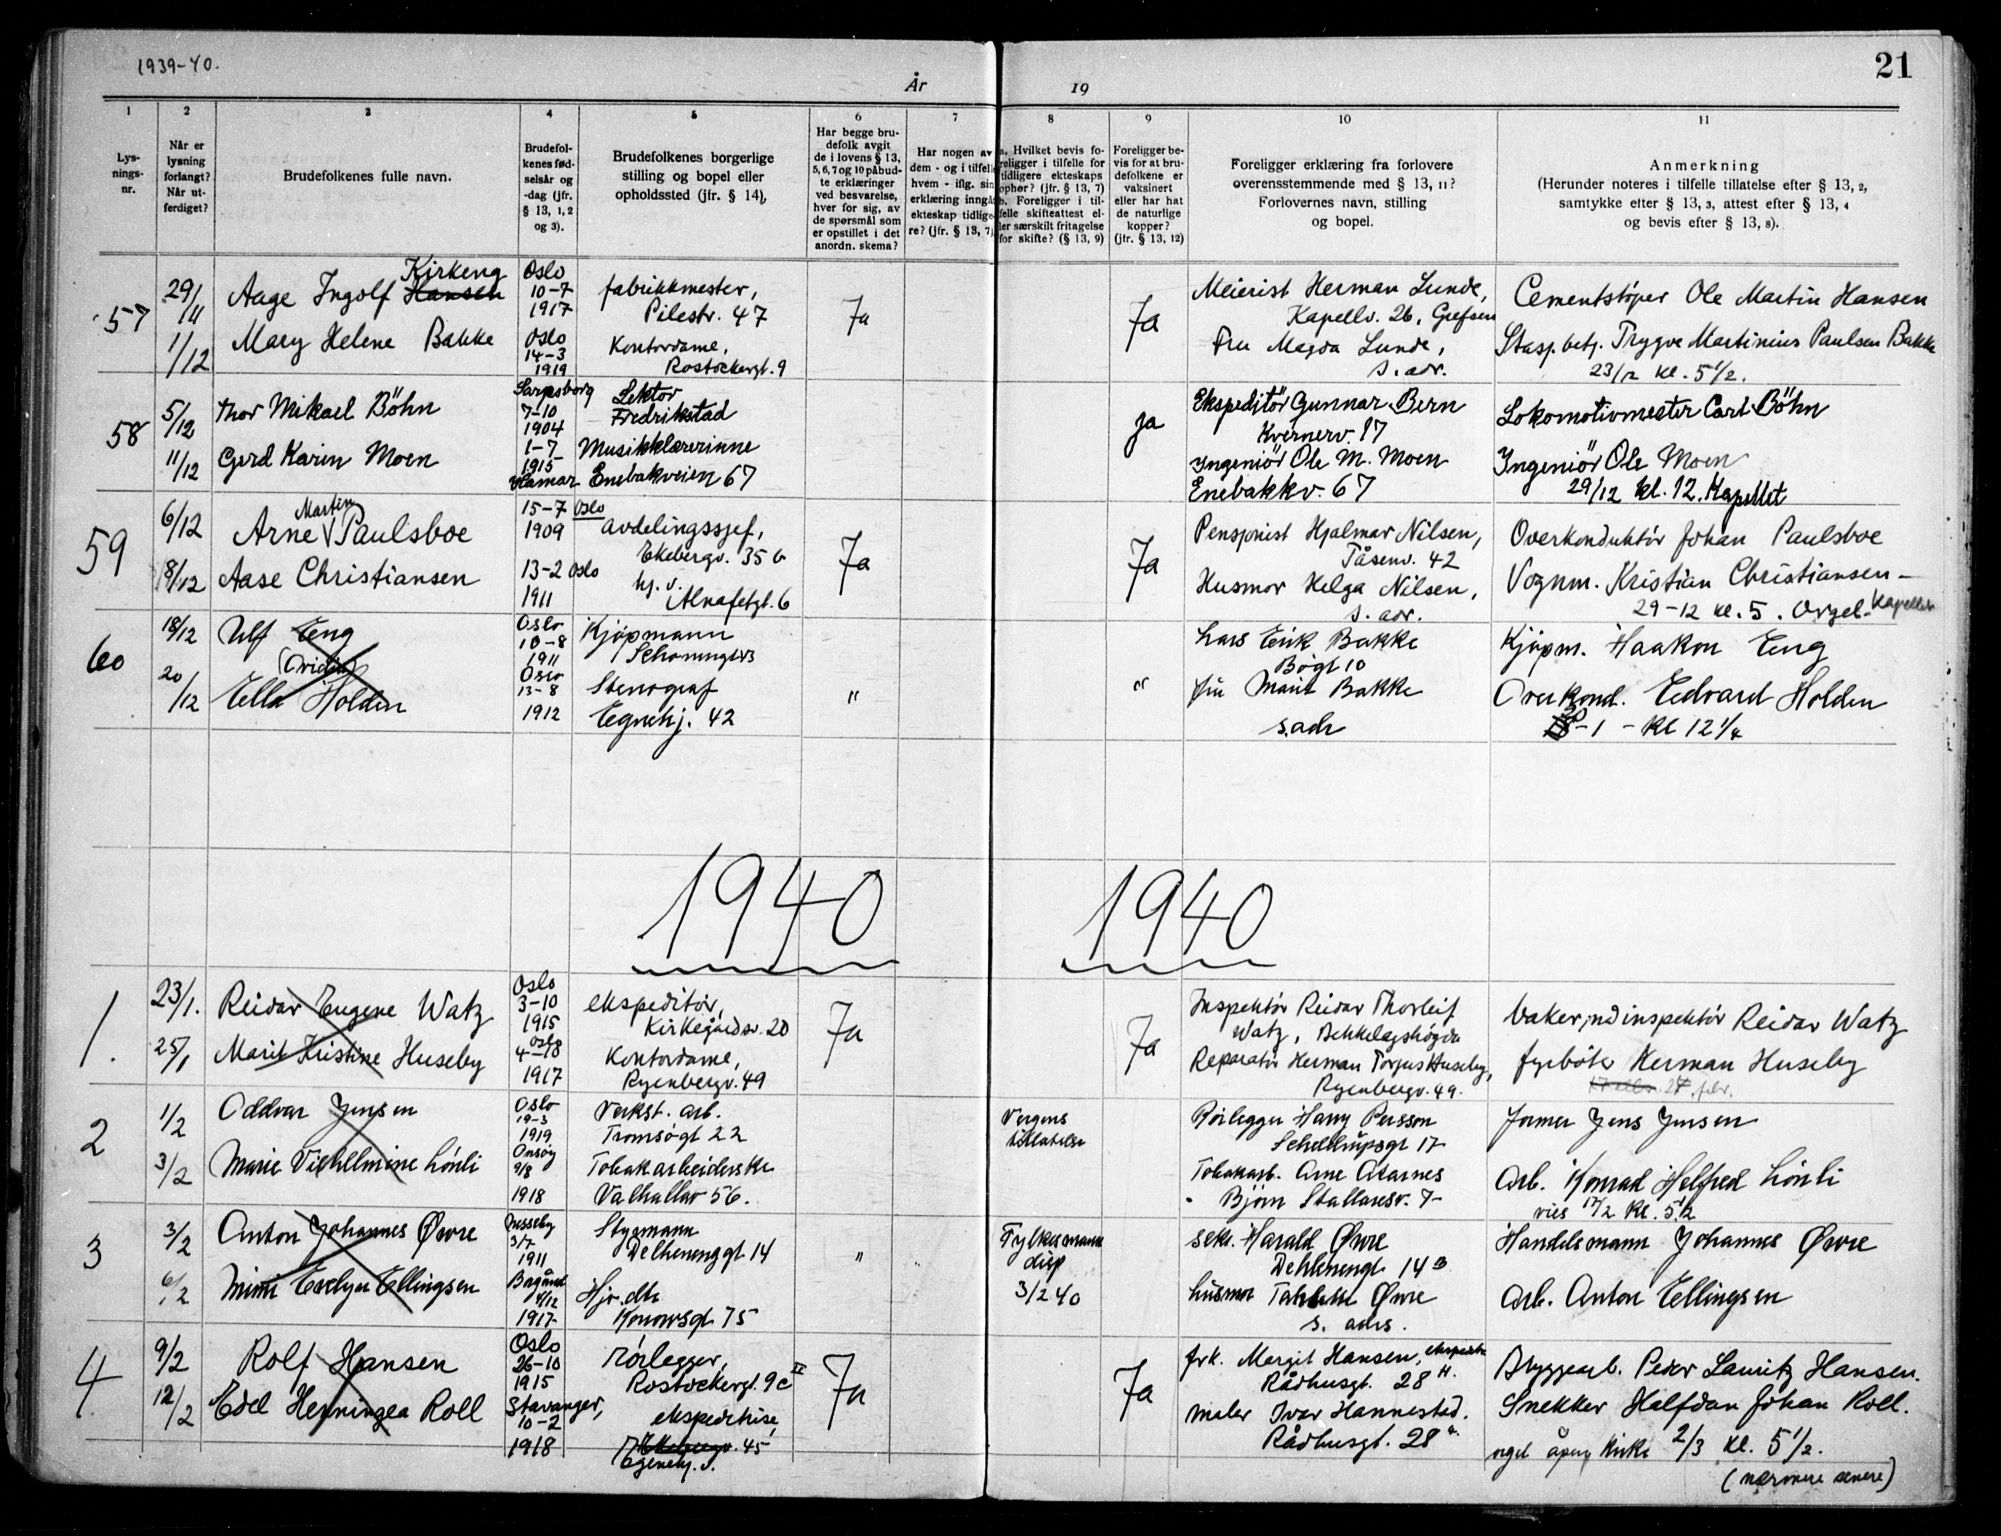 1939-40.
År
19
21
1
2
3
4
5
6
7
8
9
10
11
Lys-
nings-
nr.
Når er
lysning
forlangt?
Når ut-
ferdiget?
Brudefolkenes fulle navn.
Brudefol-
kenes fød-
selsår og
-dag (jfr.
§ 13, 1, 2
og 3).
Brudefolkenes borgerlige
stilling og bopel eller
opholdssted (jfr. § 14),
Har begge bru-
defolk avgit
de i lovens § 13,
5, 6, 7 og 10 påbud-
te erklæringer
ved besvarelse,
hver for sig, av
de spørsmål som
er opstillet i det
anordn. skema?
Har nogen av
dem - og i tilfelle
hvem - iflg. sin
erklæring inngå
ekteskap tidlige-
re? (jfr. § 13, 7)
a. Hvilket bevis fo-
religger i tilfelle for
tidligere ekteskaps
ophør? (jfr. § 13, 7)
b. Foreligger i til-
felle skifteattest el-
ler særskilt fritagelse
for skifte? (§ 13, 9)
Foreligger be-
vis for at bru-
defolkene er
vaksinert
eller har hat
de naturlige
kopper?
(jfr. § 13, 12)
Foreligger erklæring fra forlovere
overensstemmende med § 13, 11?
Forlovernes navn, stilling
og bopel.
Anmerkning
(Herunder noteres i tilfelle tillatelse efter § 13, 2,
samtykke efter § 13, 3, attest efter § 13, 4
og bevis efter § 13, 8).
57
29/11
1/12
Kirkeng
Aage Ingolf Hansen
Mary Helene Bakke
Oslo
10-7
1917
Oslo
14-3
1919
fabrikkmester,
Pilestr. 47
Kontordame,
Rostockergt. 9
Ja
Ja
Meierist Herman Lunde,
Kapellv. 26, Grefsen
Fru Magda Lunde,
s. adr.
Cementstøper Ole Martin Hansen
Stasj.betj. Trygve Martinius Paulsen Bakke
23/12 kl. 5 1/2.
58
5/12
11/12
Thor Mikael Böhn
Gerd Karin Moen
Sarpsborg
7-10
1904
1-7
1915
Hamar
Lektor
Fredrikstad
Musikklærerinne
Enebakveien 67
ja
Ekspeditör Gunnar Bern
Kvernerv. 17
Ingeniör Ole M. Moen
Enebakkv. 67
Lokomotivmester Carl Böhn
Ingeniör Ole Moen
29/12 kl. 12. Kapellet
59
6/12
8/12
Martin
Arne Paulsboe
Aase Christiansen
15-7 Oslo
1909
13-2 Oslo
1911
avdelingssjef,
Ekebergv. 35 b
hj. v.
Alnafetgt. 6
Ja
Ja
Pensjonist Hjalmar Nilsen,
Tåsenv. 42
Husmor Helga Nilsen,
s. adr.
Overkonduktør Johan Paulsboe
Vognm. Kristian Christiansen -
29-12 kl. 5. Orgel - Kapellet
60
18/12
20/12
Ulf Eng
(Ovidia)
Ella Holden
Oslo
10-8
1911
Oslo
13-8
1912
Kjøpmann
Stenograf
Egnehj. 42
"
"
Lars Erik Bakke
Bøgt 10
fru Marit Bakke
s.adr
Kjøpm. Haakon Eng
Overkond. Edvard Holden
-1 - kl 12 1/4
1940
1940
1.
23/1.
25/1
Reidar Eugene Watz
Marit Kristine Huseby
Oslo
3-10
1915
Oslo
4-18
1917
ekspeditør,
Kirkegårdsv. 20
Kontordame,
Ryenbergv. 49
Ja
Ja
Inspektør Reidar Thorleif
Watz, Bekkelagshøgda
Reparatør Herman Torfus Huseby,
Ryenbergv. 49.
Vaker,ndinspektör Reidar Watz
fyrbøte Herman Huseby
2
1/2
3/2
Oddvar Jensen
Marie Vilhelmine Lönli
Oslo
19-3
1919
Onsöy
9/8
1918
Verkst. arb.
Tromsögt 22
Tobakarbeiderske
Valhallav 56.
Vergens
tillatelse
Rörlegger Harry Persson
Schellrupsgt 17
Tobakarb. Arne Aarnes
Bjørn Stallaresv. 7
former Jens Jensen
Arb. Konrad Helfred Lönli
vies 17/2 kl. 5 1/2
3
3/2
6/2
Anton Johannes Øvre
Mimi Evelyn Ellingsen
3/7
1911
4/12
1917
Styrmann
Delhenenggt 14
Hjv. dtr
Konowsgt. 75
"
Fylkesmann
disp
3/2 40
sekr. Harald Øvre
Dehlenengt 14 B
husmor Øvre
s. adrs.
Handelsmann Johannes Øvre
Arb. Anton Ellingsen
4
9/2
12/2
Rolf Hansen
Edel Henningea Roll
Oslo
26-10
1915
Stavanger,
10-2
1918
rörlegger,
Rostockergt. 9c II
ekspeditrise,
Ekebergv. 45
Egnehj. v.
Ja
Ja
frk. Margit Hansen,
Rådhusgt. 28 H.
Maler Ivar Hannestad.
Rådhusgt. 28
Bryggearb. Peder Lauritz Hansen.
Snekker Halfdan Johan Roll.
orgel åpen kirke 2/3 kl. 5 1/2.
(nærmere senere)